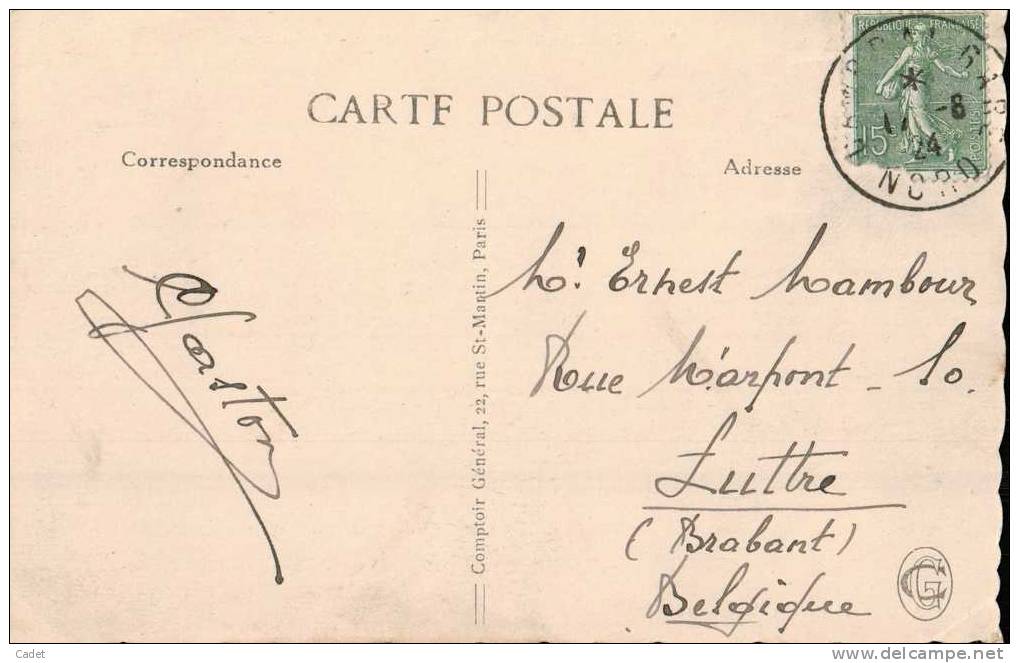 CARTE POSTALE
Correspondance
Adresse
RÉPUBLIQUE FRANÇAISE
15c
POSTES
GARE
11 -8
24
NORD
Gaston
Comptoir Général, 22, rue St-Martin, Paris
Mr. Ernest Mambour
Rue Marpont - 10.
Luttre
(Brabant)
Belgique
CG
Cadet
www.delcampe.net